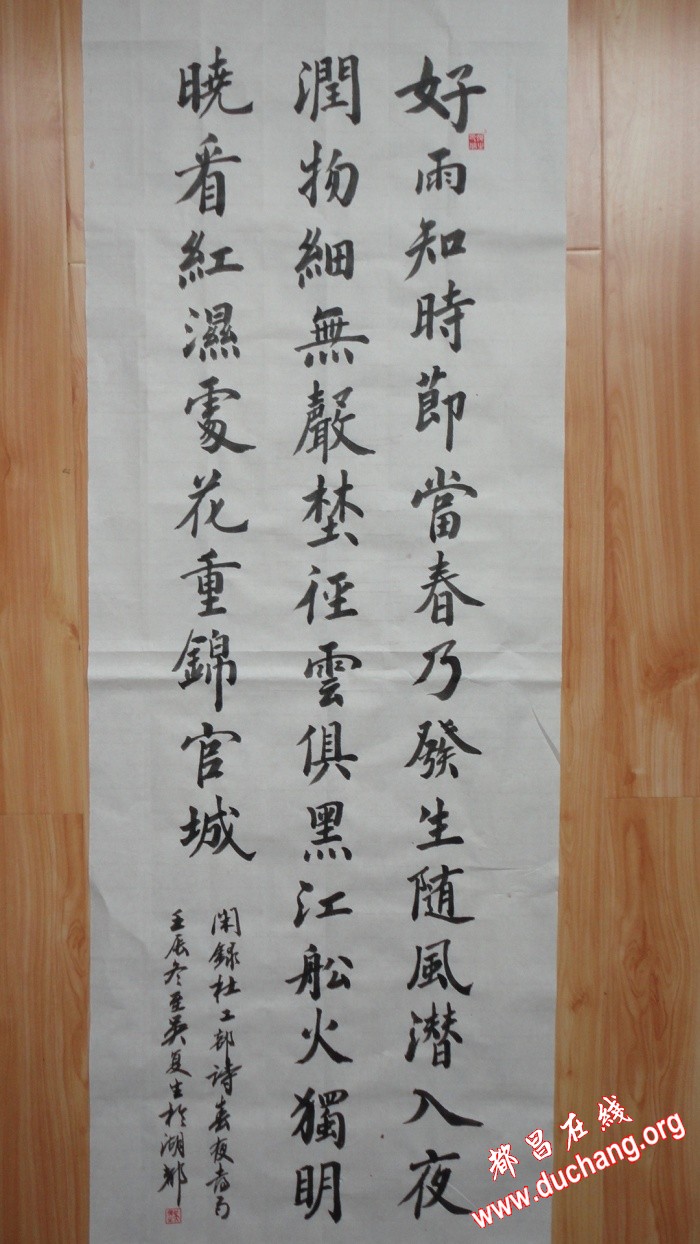 好雨知時節當春乃發生随風潛入夜
潤物細無聲埜徑雲俱黑江船火獨明
曉看紅濕處花重錦官城
閑録杜工部詩春夜喜雨
壬辰冬至吴夏生於湖都
都昌在线
www.duchang.org